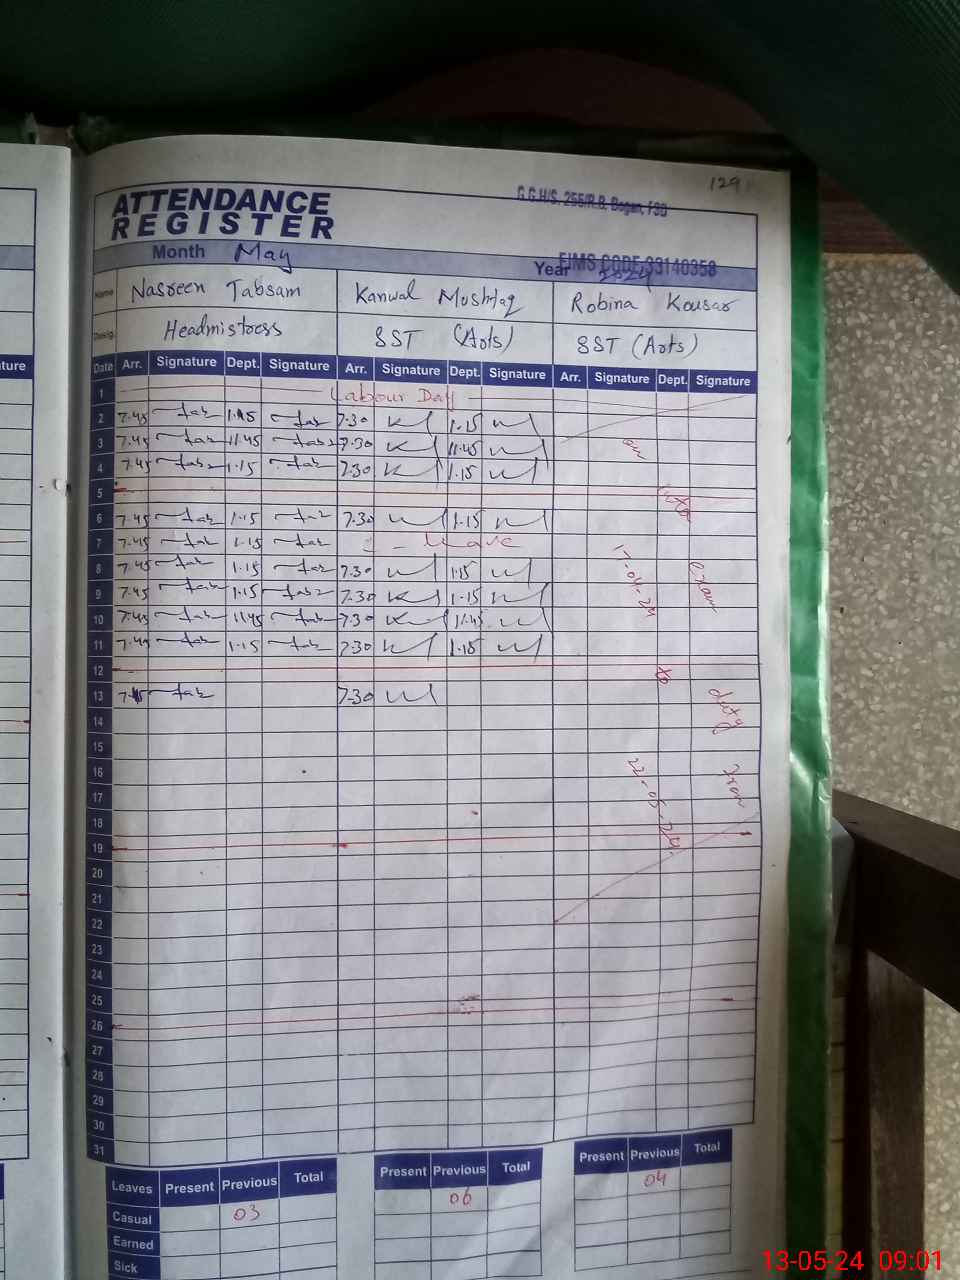 129
G.G.H/S. 255/R.B. Dogan, FSD
ATTENDANCE
REGISTER
Month May
EIMS CODE 33140358
Year 2024
Name Nasreen Tabsam Kanwal Mushtaq Robina Kousar
Desig. Headmistress SST (Arts) SST (Arts)
ture
Date Arr. Signature Dept. Signature Arr. Signature Dept. Signature Arr. Signature Dept. Signature
1 Labour Day
2 7.45 1.15 7.30 1.15
3 7.45 11.45 7.30 11.45 on
4 7.45 1.15 7.30 1.15
5
6 7.45 1.15 7.30 1.15
7 7.45 1.15 1 - Leave
8 7.45 1.15 7.30 1.15 1-04-24 exam
9 7.45 1.15 7.30 1.15
10 7.45 11.45 7.30 11.45
11 7.45 1.15 7.30 1.15
12 to
13 7.45 7.30 duty
14
15
16 22-05-24 from
17
18
19
20
21
22
23
24
25
26
27
28
29
30
31
Leaves Present Previous Total Present Previous Total Present Previous Total
Casual 03 06 04
Earned
Sick
13-05-24 09:01